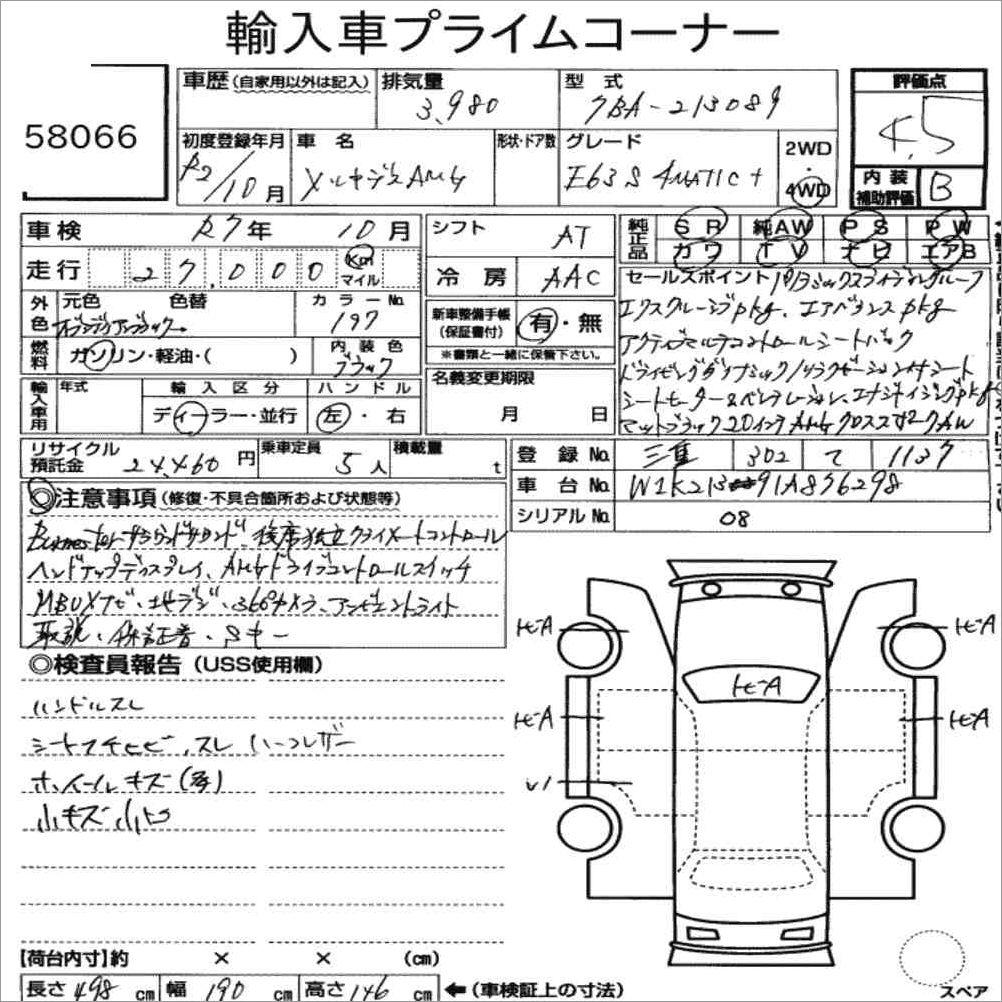 輸入車プライムコーナー
58066
車歴(自家用以外は記入) 排気量 3,980 型式 7BA-213089 評価点 4.5
初度登録年月 R2/10月 車名 メルセデスAMG 形状・ドア数 グレード E63S 4MATIC+ 2WD・4WD 内装補助評価 B
車検 R7年 10月 シフト AT 純正品 SR 純AW PS PW
カワ TV ナビ エアB
走行 27,000 Km マイル 冷房 AAC
外色 元色 色替 オブシディアンブラック カラーNo. 197
燃料 ガソリン・軽油・( ) 内装色 ブラック
新車整備手帳(保証書付) 有・無
※書類と一緒に保管下さい。
輸入車用 年式 輸入区分 ディーラー・並行 ハンドル 左・右
名義変更期限 月 日
セールスポイント パノラミックスライディングルーフ
エクスクルーシブpkg、エアバランスpkg
アクティブマルチコントロールシートバック
ドライビングダイナミック/リラクゼーション付シート
シートヒーター&ベンチレーション、エナジャイジングpkg
マットブラック20インチAMGクロススポークAW
リサイクル預託金 24,460円 乗車定員 5人 積載量 t
登録No. 三重 302 て 1137
車台No. W1K213 91A836298
シリアルNo. 08
◎注意事項(修復・不具合箇所および状態等)
サラウンドサウンド、後席独立クライメートコントロール
ヘッドアップディスプレイ、AMGドライブコントロールスイッチ
MBUXナビ・地デジ・360°カメラ、アンビエントライト
取説、保証書、Sキー
◎検査員報告(USS使用欄)
ハンドルスレ
シートコゲヒビ、スレ ハーフレザー
ホイールキズ(多)
小キズ小凹
トビA
トビA
トビA
トビA
トビA
【荷台内寸】約 × × (cm)
長さ 498 cm 幅 190 cm 高さ 146 cm ←(車検証上の寸法)
スペア